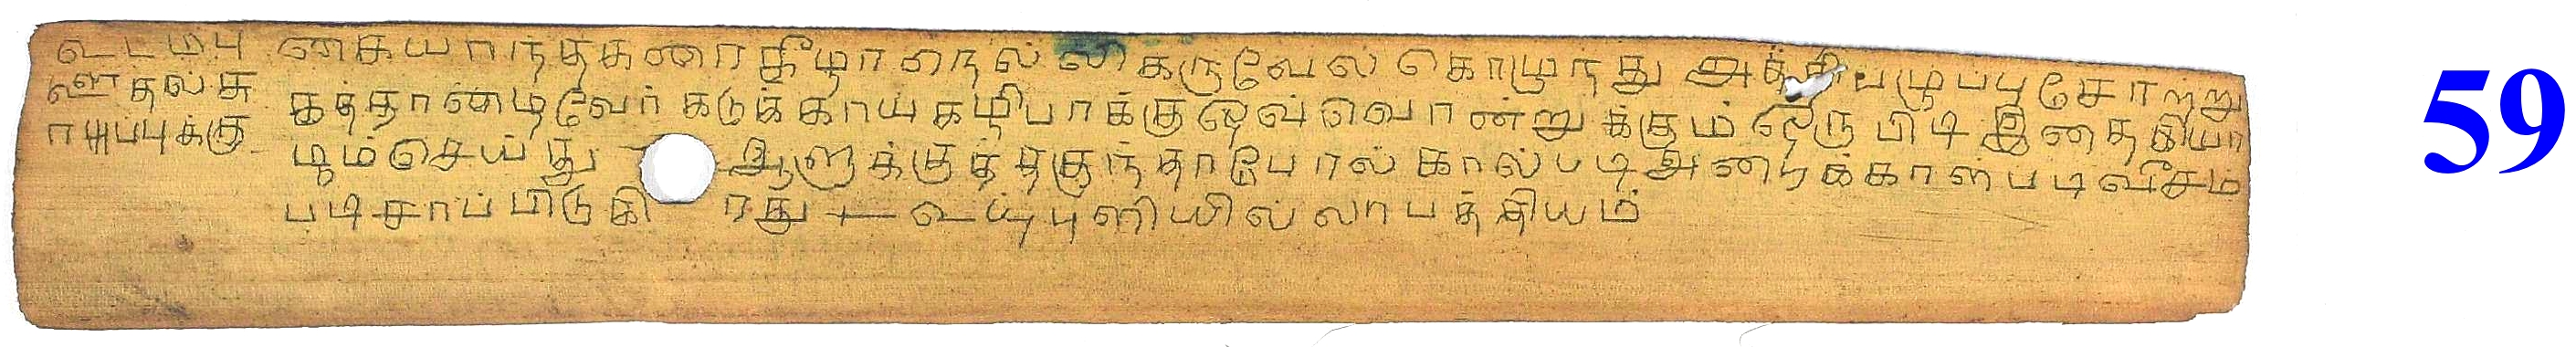 உடம்பு
ஊதல்சு
ரப்புக்கு
கையாந்தகரை கீழாநெல்லி கருவேல்கொழுந்து அத்திபழுப்பு சோற்று
கத்தாளைவேர் கடுக்காய் களிபாக்கு ஒவ்வொன்றுக்கும் ஒரு பிடி இதை கியா
ழம் செய்து ஆளுக்குத்தகுந்தாபோல் கால்படி அரைக்கால்படி வீசம்
படி சாப்பிடுகிறது உப்பு புளியில்லா பத்தியம்
59